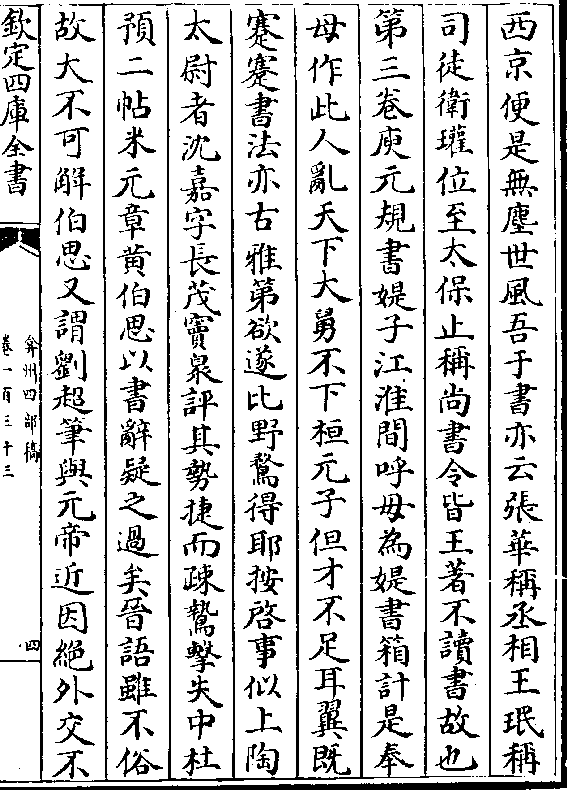 西京便是無塵世風吾于書亦云張華稱丞相王珉稱
司徒衛瓘位至太保止稱尚書令皆王著不讀書故也
第三卷庾元規書媞子江淮間呼母為媞書箱計是奉
母作此人亂天下大舅不下桓元子但才不足耳翼既
蹇蹇書法亦古雅第欲遂比野鶩得耶按啓事似上陶
太尉者沈嘉字長茂竇臮評其勢捷而疎鷙擊失中杜
預二帖米元章黄伯思以書辭疑之過矣晉語雖不俗
故大不可解伯思又謂劉超筆與元帝近因絶外交不
欽定四庫全書
弇州四部稿
卷一百三十三
四